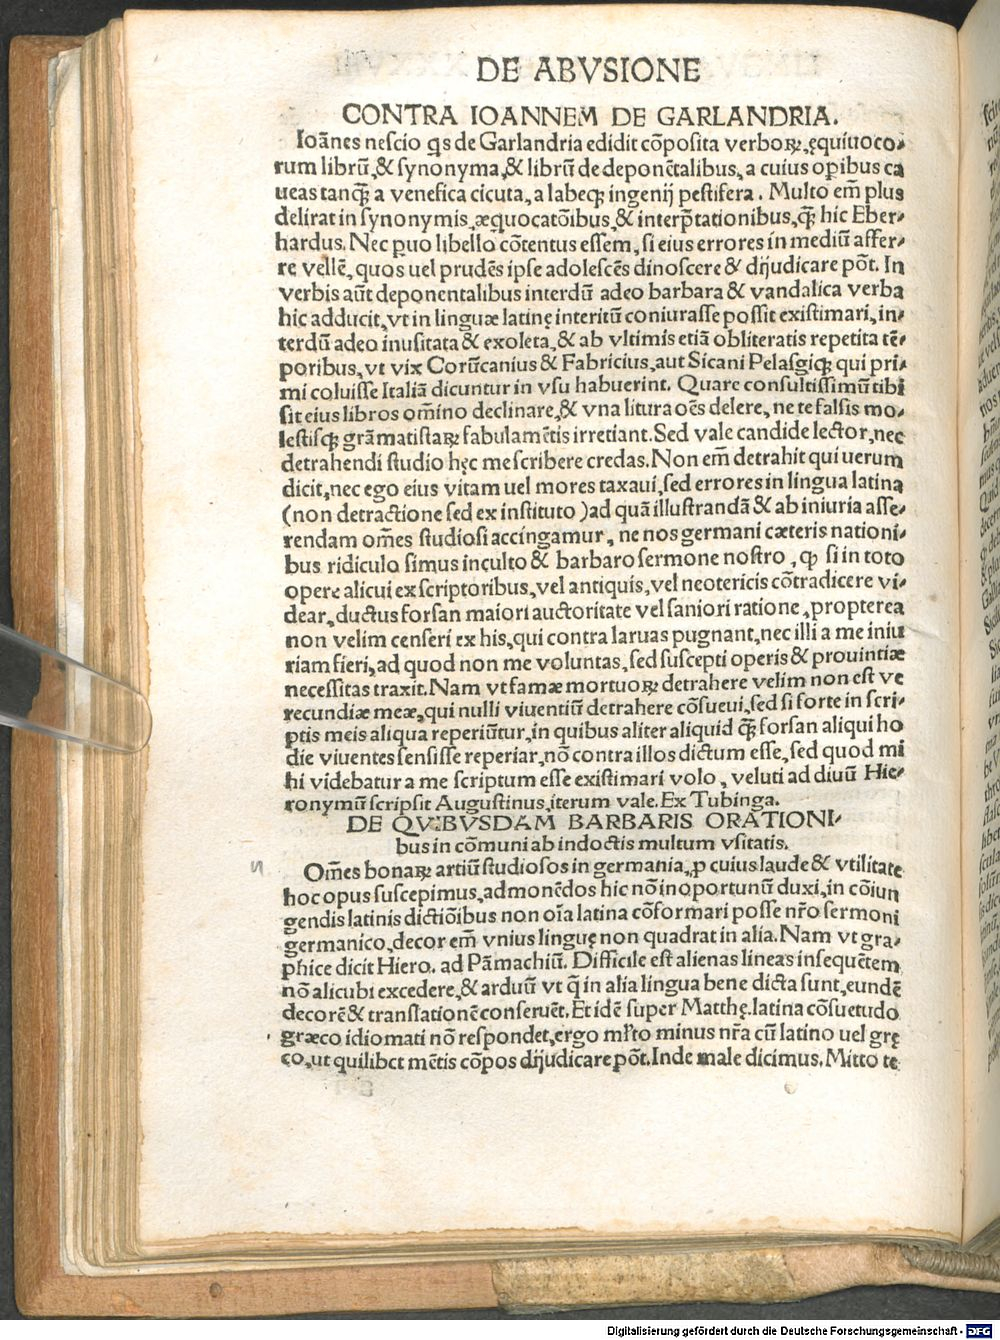 DE ABVSIONE
CONTRA IOANNEM DE GARLANDRIA.
Ioānes nescio qs de Garlandria edidit cōposita verboꝝ, ęquiuoco⸗
rum librū, & synonyma, & librū de deponētalibus, a cuius opibus ca
ueas tanqꝫ a venefica cicuta, a labeqꝫ ingenij pestifera. Multo em̄ plus
delirat in synonymis, æquocatōibus, & interp̄tationibus, qꝫ hic Eber⸗
hardus. Nec puo libello cōtentus essem, si eius errores in mediū affer⸗
re vellē, quos uel prudēs ipse adolescēs dinoscere & dijudicare pōt. In
verbis aūt deponentalibus interdū adeo barbara & vandalica verba
hic adducit, vt in linguæ latinę interitū coniurasse possit existimari, in⸗
terdū adeo inusitata & exoleta, & ab vltimis etiā obliteratis repetita tē⸗
poribus, vt vix Corūcanius & Fabricius, aut Sicani Pelasgiqꝫ qui pri⸗
mi coluisse Italiā dicuntur in vsu habuerint. Quare consultissimū tibi
sit eius libros om̄ino declinare, & vna litura oēs delere, ne te falsis mo⸗
lestisqꝫ grāmatistaꝝ fabulamētis irretiant. Sed vale candide lector, nec
detrahendi studio hęc me scribere credas. Non em̄ detrahit qui uerum
dicit, nec ego eius vitam uel mores taxaui, sed errores in lingua latina
(non detractione sed ex instituto) ad quā illustrandā & ab iniuria asse⸗
rendam om̄es studiosi accingamur, ne nos germani cæteris nationi⸗
bus ridiculo simus inculto & barbaro sermone nostro, qꝫ si in toto
opere alicui ex scriptoribus, vel antiquis, vel neotericis cōtradicere vi⸗
dear, ductus forsan maiori auctoritate vel saniori ratione, propterea
non velim censeri ex his, qui contra laruas pugnant, nec illi a me iniu
riam fieri, ad quod non me voluntas, sed suscepti operis & prouintiæ
necessitas traxit. Nam vt famæ mortuoꝝ detrahere velim non est ve
recundiæ meæ, qui nulli viuentiū detrahere cōsueui, sed si forte in scri⸗
ptis meis aliqua reperiūtur, in quibus aliter aliquid qꝫ forsan aliqui ho
die viuentes sensisse reperiar, nō contra illos dictum esse, sed quod mi
hi videbatur a me scriptum esse existimari volo, veluti ad diuū Hie⸗
ronymū scripsit Augustinus, iterum vale. Ex Tubinga.
DE QVIBVSDAM BARBARIS ORATIONI⸗
bus in cōmuni ab indoctis multum vsitatis.
Om̄es bonaꝝ artiū studiosos in germania, p cuius laude & vtilitate
hoc opus suscepimus, admonēdos hic nō inoportunū duxi, in cōiun
gendis latinis dictiōibus non oīa latina cōformari posse nr̄o sermoni
germanico, decor em̄ vnius linguę non quadrat in alia. Nam vt gra⸗
phice dicit Hiero. ad Pāmachiū. Difficile est alienas lineas insequētem
nō alicubi excedere, & arduū vt q̄ in alia lingua bene dicta sunt, eundē
decorē & translationē conseruēt. Et idē super Matthę. latina cōsuetudo
græco idiomati nō respondet, ergo młto minus nr̄a cū latino uel grę
co, ut quilibet mētis cōpos dijudicare pōt. Inde male dicimus. Mitto te
Digitalisierung gefördert durch die Deutsche Forschungsgemeinschaft - DFG